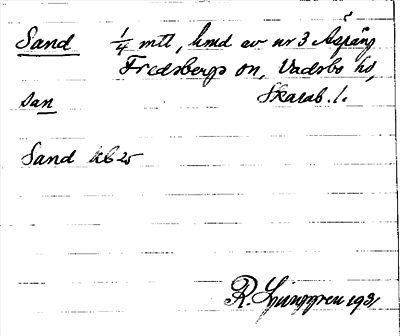 Sand 1/4 mtl, hmd av nr 3 Aspäng
Fredsbergs sn, Vadsbo hd,
san Skarab. l.
Sand kb 25
R. Ljunggren 1931